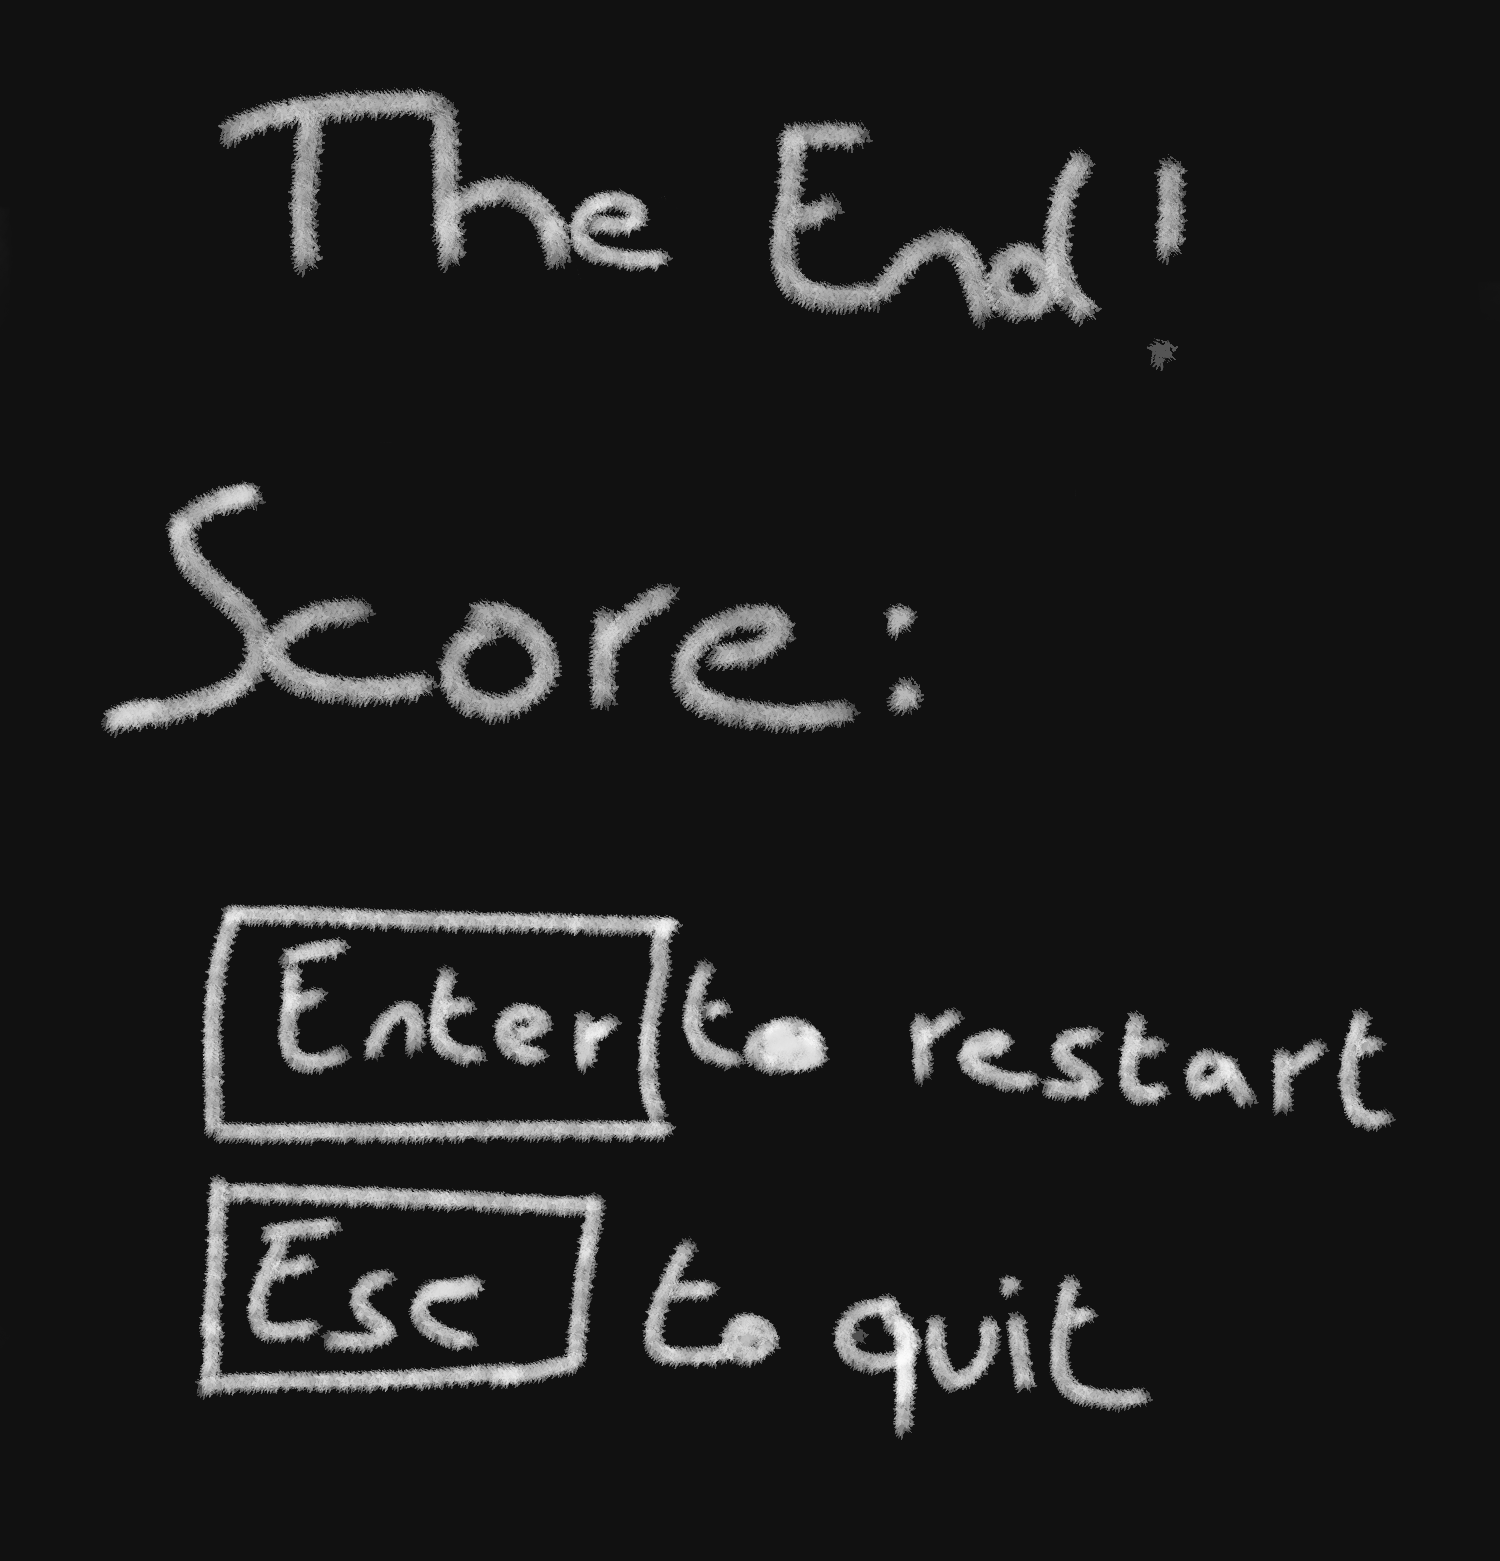 The End!
Score:
Enter to restart
Esc to quit